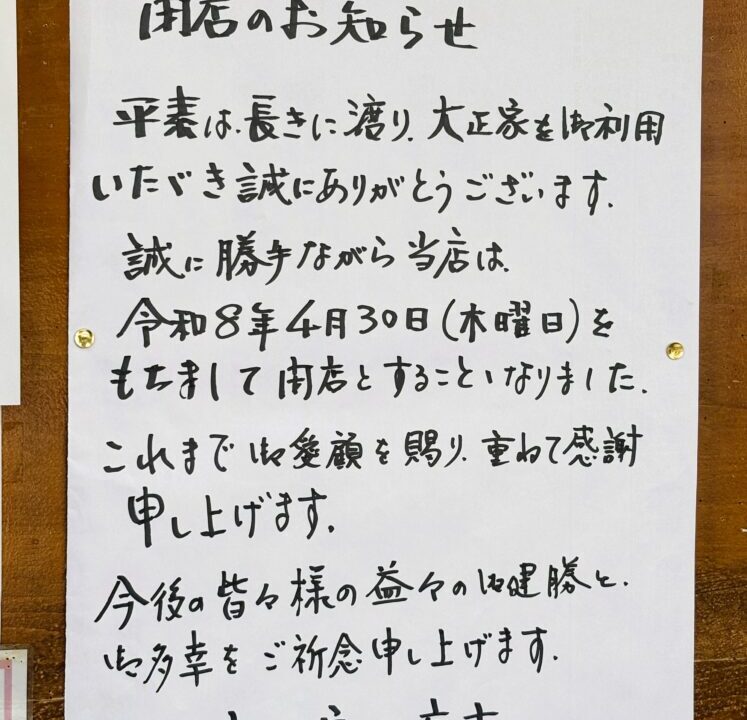 閉店のお知らせ
平素は長きに渡り、大正家を御利用
いただき誠にありがとうございます。
誠に勝手ながら当店は、
令和8年4月30日(木曜日)を
もちまして閉店とすることになりました。
これまで御愛顧を賜り、重ねて感謝
申し上げます。
今後の皆々様の益々の御健勝と、
御多幸をご祈念申し上げます。